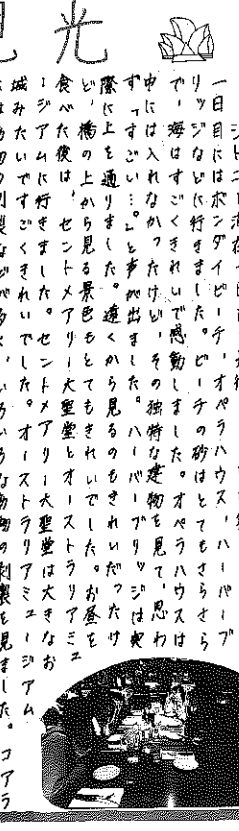 光
一日目にはボンダイビーチ、オペラハウス、ハーバーブ
リッジなどに行きました。ビーチの砂はとてもさらさら
で、海はすごくきれいで感動しました。オペラハウスは
中には入れなかったけど、その独特な建物を見て、思わ
ず"すごい…。"と声が出ました。ハーバーブリッジは実
際に上を通りました。遠くから見るのもきれいだったけ
ど、橋の上から見る景色もとてもきれいでした。お昼を
食べた後は、セントメアリー大聖堂とオーストラリアミュ
ージアムに行きました。セントメアリー大聖堂は大きなお
城みたいですごくきれいでした。オーストラリアミュージアム
剥製などが多く、いろいろな動物の剥製を見ました。コアラ